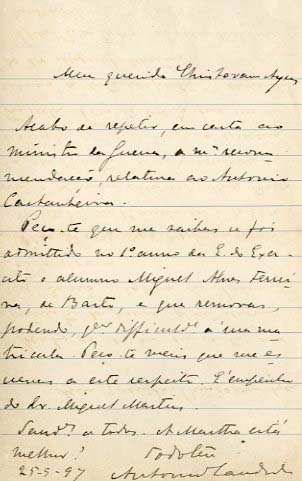 Meu querido Christovam Ayres
Acabo de repetir, em carta ao
ministro da Guerra, a mª recom-
mendação, relativa ao Antonio
Castanheira.
Peço-te que me saibas se foi
admittido no 1º anno da E. do Exer-
cito o alumno Miguel Alves Ferrei-
ra, de Basto, e que removas,
podendo, qqr difficuldᵉ á sua ma-
tricula. Peço-te mais que me es-
crevas a este respeito. É empenho
do Dr. Miguel Martins.
Saudᵉˢ a todos. A Martha está
melhor!
Todo teu
25-9-97 Antonio Candido